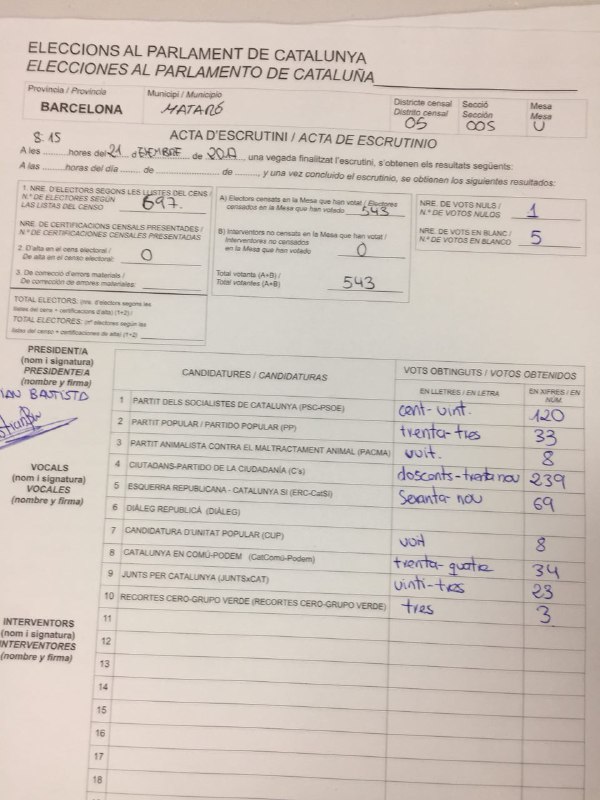 ELECCIONS AL PARLAMENT DE CATALUNYA
ELECCIONES AL PARLAMENTO DE CATALUÑA
Provincia / Provincia
BARCELONA
Municipi / Municipio
MATARÓ
Districte censal
Distrito censal
05
Secció
Sección
005
Mesa
Mesa
U
ACTA D'ESCRUTINI / ACTA DE ESCRUTINIO
8:15
A les ......... hores del 21 d' DEMBRE de 2017, una vegada finalitzat l'escrutini, s'obtenen els resultats següents:
A las ......... horas del día ......... de ......... de ........., y una vez concluido el escrutinio, se obtienen los siguientes resultados:
1. NRE. D'ELECTORS SEGONS LES LLISTES DEL CENS /
N.º DE ELECTORES SEGÚN
LAS LISTAS DEL CENSO
697.
NRE. DE CERTIFICACIONS CENSALS PRESENTADES /
N.º DE CERTIFICACIONES CENSALES PRESENTADAS
2. D'alta en el cens electoral /
De alta en el censo electoral:
0
3. De correcció d'errors materials /
De corrección de errores materiales:
TOTAL ELECTORS: (nre. d'electors segons les
llistes del cens + certificacions d'alta) (1+2) /
TOTAL ELECTORES: (nº electores según las
listas del censo + certificaciones de alta) (1+2)
A) Electors censats en la Mesa que han votat / Electores
censados en la Mesa que han votado
543
B) Interventors no censats en la Mesa que han votat /
Interventores no censados
en la Mesa que han votado
0
Total votants (A+B) /
Total votantes (A+B)
543
NRE. DE VOTS NULS /
N.º DE VOTOS NULOS
1
NRE. DE VOTS EN BLANC /
N.º DE VOTOS EN BLANCO
5
PRESIDENT/A
(nom i signatura)
PRESIDENTE/A
(nombre y firma)
BAUTISTA
VOCALS
(nom i signatura)
VOCALES
(nombre y firma)
INTERVENTORS
(nom i signatura)
INTERVENTORES
(nombre y firma)
CANDIDATURES / CANDIDATURAS
VOTS OBTINGUTS / VOTOS OBTENIDOS
EN LLETRES / EN LETRA
EN XIFRES / EN NÚM.
1 PARTIT DELS SOCIALISTES DE CATALUNYA (PSC-PSOE) cent-vint. 120
2 PARTIT POPULAR / PARTIDO POPULAR (PP) trenta-tres 33
3 PARTIT ANIMALISTA CONTRA EL MALTRACTAMENT ANIMAL (PACMA) vuit. 8
4 CIUTADANS-PARTIDO DE LA CIUDADANÍA (C's) doscents-trenta nou 239
5 ESQUERRA REPUBLICANA - CATALUNYA SI (ERC-CatSI) Seixanta-nou 69
6 DIÀLEG REPUBLICÀ (DIÀLEG)
7 CANDIDATURA D'UNITAT POPULAR (CUP) vuit 8
8 CATALUNYA EN COMÚ-PODEM (CatComú-Podem) trenta-quatre 34
9 JUNTS PER CATALUNYA (JUNTSxCAT) vinti-tres 23
10 RECORTES CERO-GRUPO VERDE (RECORTES CERO-GRUPO VERDE) tres 3
11
12
13
14
15
16
17
18